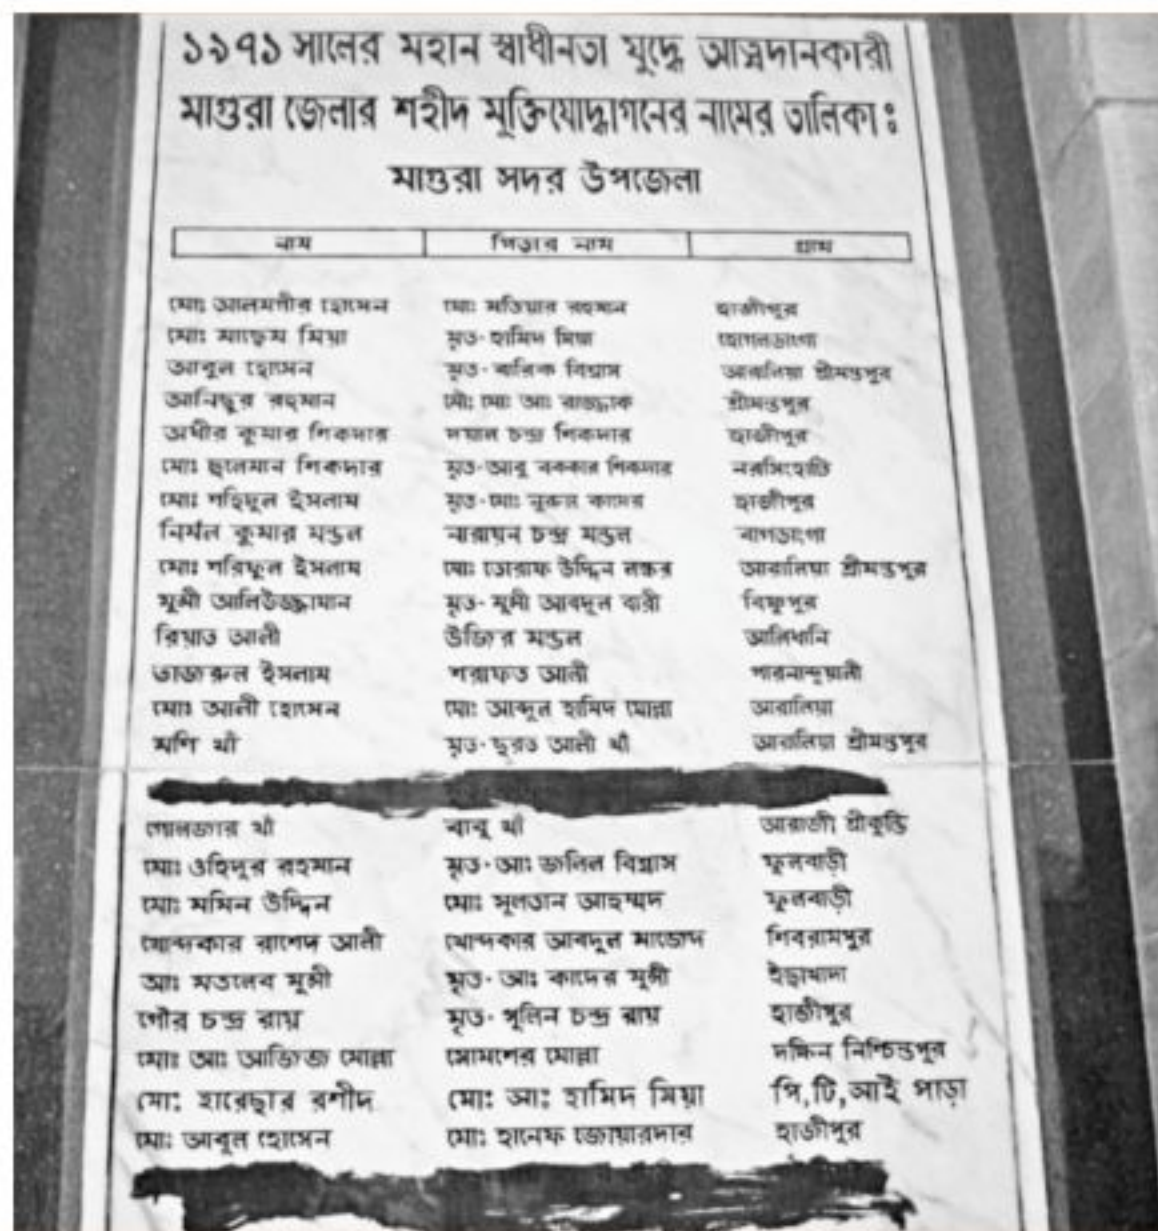 ১৯৭১ সালের মহান স্বাধীনতা যুদ্ধে আত্মদানকারী
মাগুরা জেলার শহীদ মুক্তিযোদ্ধাগনের নামের তালিকাঃ
মাগুরা সদর উপজেলা
নাম পিতার নাম গ্রাম
মোঃ আলমগীর হোসেন মোঃ মতিয়ার রহমান হাজীপুর
মোঃ মাছেম মিয়া মৃত-হামিদ মিয়া
আবুল হোসেন মৃত-বারিক বিশ্বাস আরালিয়া শ্রীমন্তপুর
আনিছুর রহমান মৌঃ মোঃ আঃ রাজ্জাক শ্রীমন্তপুর
অধীর কুমার শিকদার দয়াল চন্দ্র শিকদার হাজীপুর
মোঃ ছলেমান শিকদার মৃত-আবু বককার শিকদার নরসিংহাটি
মোঃ শহিদুল ইসলাম মৃত-মোঃ নূরুল কাদের হাজীপুর
নির্মল কুমার মন্ডল নারায়ন চন্দ্র মন্ডল বাগডাংগা
মোঃ শরিফুল ইসলাম মোঃ তোরাফ উদ্দিন লস্কর আরালিয়া শ্রীমন্তপুর
মুন্সী আলিউজ্জামান মৃত-মুন্সী আবদুল বারী বিষ্ণুপুর
রিয়াত আলী উজির মন্ডল আলিধানি
তাজরুল ইসলাম শরাফত আলী পারনান্দুয়ালী
মোঃ আলী হোসেন মোঃ আব্দুল হামিদ মোল্লা আরালিয়া
মণি খাঁ মৃত-ছুরত আলী খাঁ আরালিয়া শ্রীমন্তপুর
গোলজার খাঁ বাবু খাঁ আরাজী শ্রীকুন্ডি
মোঃ ওহিদুর রহমান মৃত-আঃ জলিল বিশ্বাস ফুলবাড়ী
মোঃ মমিন উদ্দিন মোঃ সুলতান আহম্মদ ফুলবাড়ী
খোন্দকার রাশেদ আলী খোন্দকার আবদুল মাজেদ শিবরামপুর
আঃ মতলেব মুন্সী মৃত-আঃ কাদের মুন্সী ইছাখাদা
গৌর চন্দ্র রায় মৃত-পুলিন চন্দ্র রায় হাজীপুর
মোঃ আঃ আজিজ মোল্লা সোমশের মোল্লা দক্ষিন নিশ্চিন্তপুর
মো: হারেছার রশীদ মো: আ: হামিদ মিয়া পি,টি,আই পাড়া
মোঃ আবুল হোসেন মোঃ হানেফ জোয়ারদার হাজীপুর